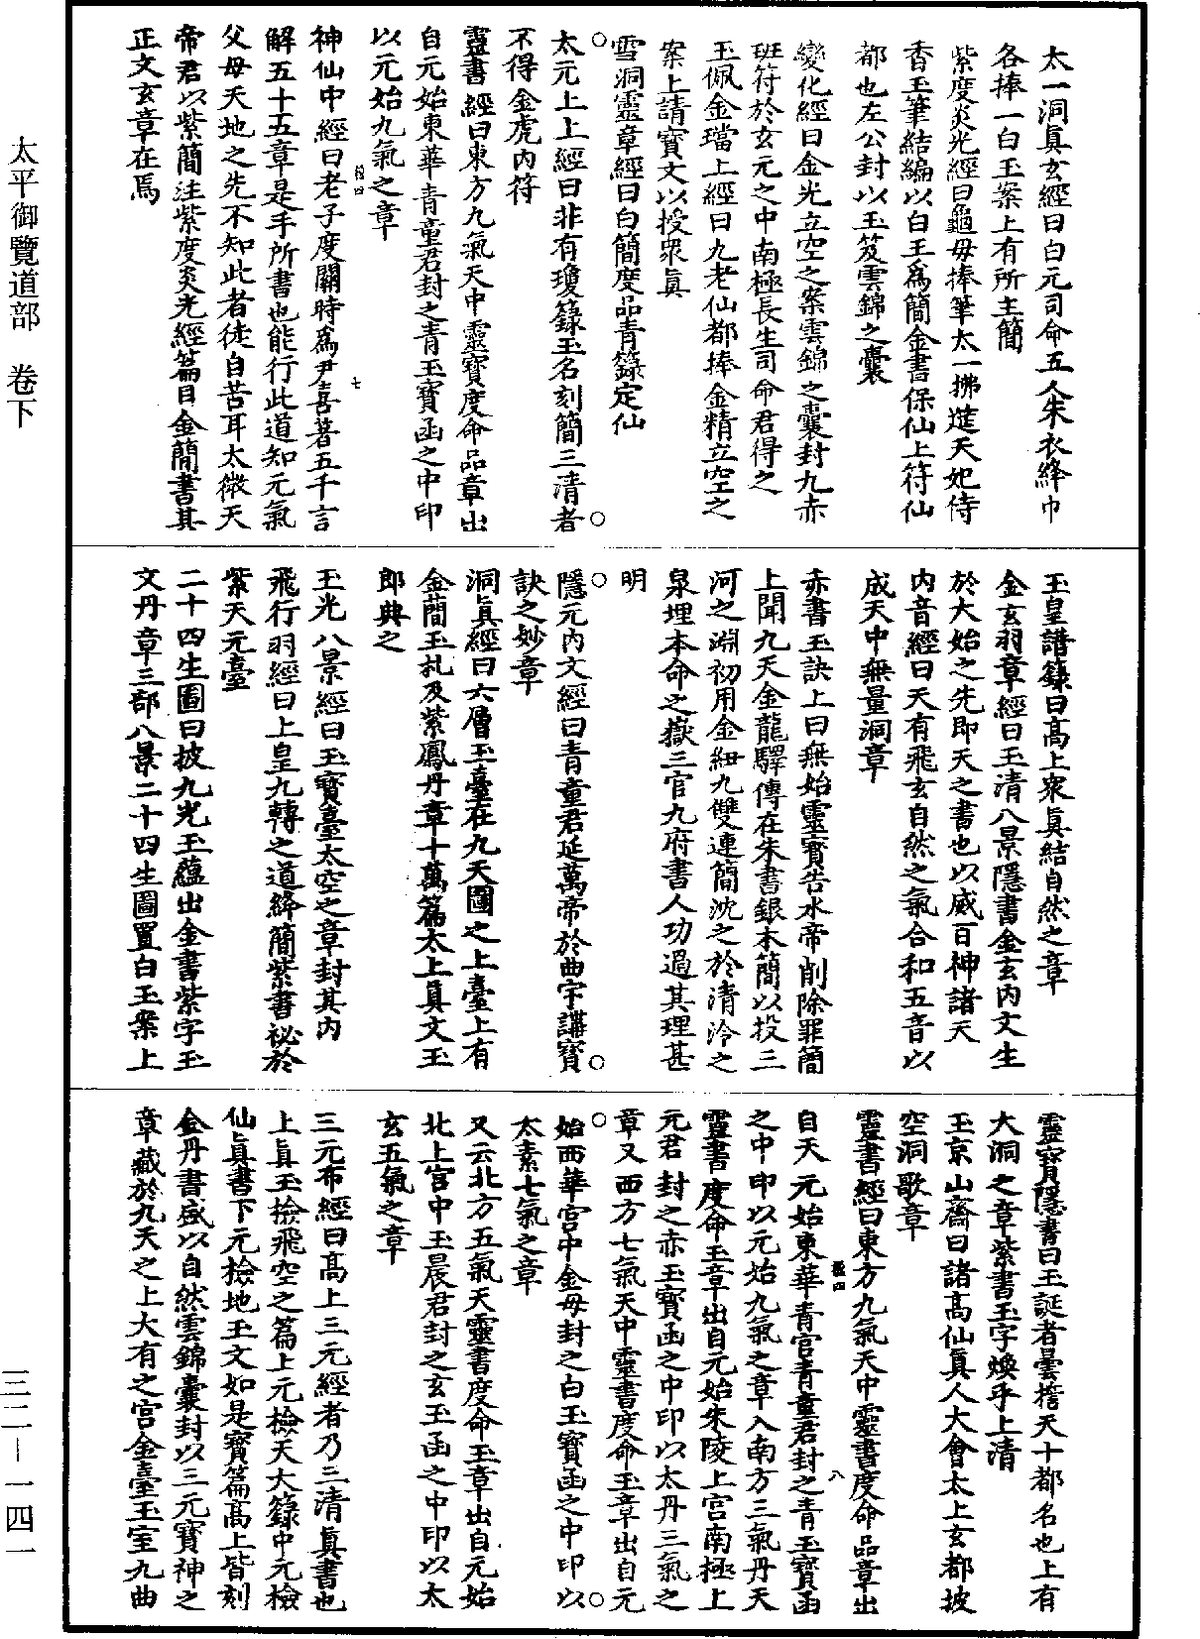 太一洞眞玄經曰白元司命五人朱衣絳巾
各捧一白玉案上有所主簡
紫度炎光經曰龜母捧筆太一拂筵天妃侍
香玉筆結編以白玉爲簡金書保仙上符仙
都也左公封以玉笈雲錦之囊
變化經曰金光立空之案雲錦之囊封九赤
班符於玄元之中南極長生司命君得之
玉佩金璫上經曰九老仙都捧金精立空之
案上請寶文以授衆眞
雪洞靈章經曰白簡度品青籙定仙
太元上上經曰非有瓊籙玉名刻簡三清者
不得金虎內符
靈書經曰東方九氣天中靈寶度命品章出
自元始東華青童君封之青玉寶函之中印
以元始九氣之章
神仙中經曰老子度關時爲尹喜著五千言
解五十五章是手所書也能行此道知元氣
父母天地之先不知此者徒自苦耳太微天
帝君以紫簡注紫度炎光經篇目金簡書其
正文玄章在焉
七
玉皇譜籙曰高上衆眞結自然之章
金玄羽章經曰玉清八景隱書金玄內文生
於大始之先即天之書也以威百神諸天
內音經曰天有飛玄自然之氣合和五音以
成天中無量洞章
赤書玉訣上曰無始靈寶告水帝削除罪簡
上聞九天金龍驛傳在朱書銀木簡以投三
河之淵初用金紐九雙連簡沈之於清泠之
泉埋本命之嶽三官九府書人功過其理甚
明
隱元內文經曰青童君延萬帝於曲宇講寶
訣之妙章
洞眞經曰六層玉臺在九天圖之上臺上有
金蕳玉札及紫鳳丹章十萬篇太上眞文玉
郎典之
玉光八景經曰玉寶臺太空之章封其內
飛行羽經曰上皇九轉之道絳簡紫書祕於
紫天元臺
二十四生圖曰披九光玉蘊出金書紫字玉
文丹章三部八景二十四生圖置白玉案上
靈寶隱書曰玉誕者曇擔天十都名也上有
大洞之章紫書玉字煥乎上清
玉京山齋曰諸高仙眞人大會太上玄都披
空洞歌章
靈書經曰東方九氣天中靈書度命品章出
自天元始東華青宮青童君封之青玉寶函
之中印以元始九氣之章入南方三氣丹天
靈書度命玉章出自元始朱陵上宮南極上
元君封之赤玉寶函之中印以太丹三氣之
章又西方七氣天中靈書度命玉章出自元
始西華宮中金母封之白玉寶函之中印以
太素七氣之章
又云北方五氣天靈書度命玉章出自元始
北上宮中玉晨君封之玄玉函之中印以太
玄五氣之章
三元布經曰高上三元經者乃三清眞書也
上眞玉撿飛空之篇上元檢天大籙中元檢
仙眞書下元檢地玉文如是寶篇高上皆刻
金丹書盛以自然雲錦囊封以三元寶神之
章藏於九天之上大有之宮金臺玉室九曲
八
太平御覽道部　卷下
三二－一四一